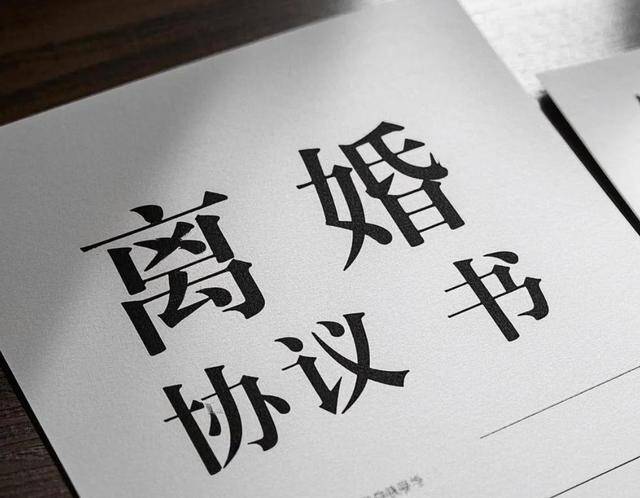 离婚
协议书